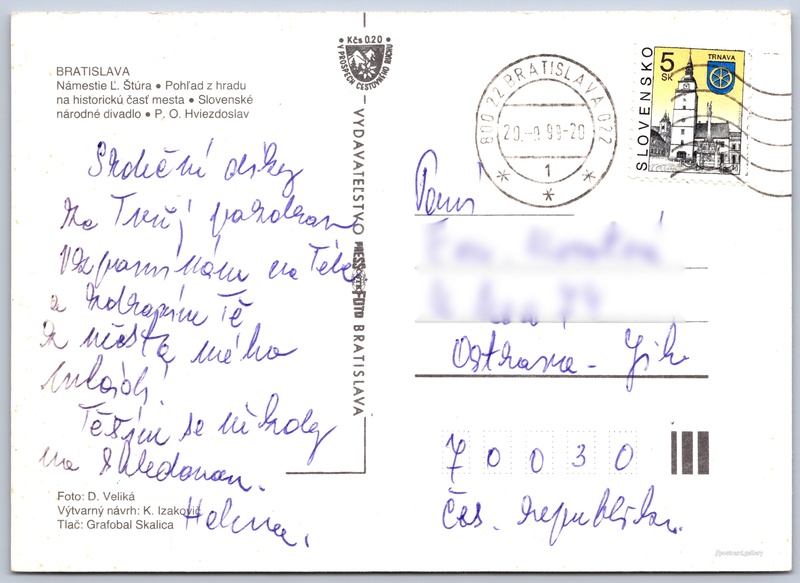 BRATISLAVA
Námestie Ľ. Štúra • Pohľad z hradu
na historickú časť mesta • Slovenské
národné divadlo • P. O. Hviezdoslav
Srdečné díky
za Tvůj pozdrav
Vzpomínám na Tebe
a zdravím Tě
z města mého
mládí.
Těším se někdy
na shledanou.
Helena.
Foto: D. Veliká
Výtvarný návrh: K. Izakovič
Tlač: Grafobal Skalica
Kčs 0.20
V PROSPECH CESTOVNÉHO RUCHU
VYDAVATEĽSTVO PRESSFOTO BRATISLAVA
800 22 BRATISLAVA 022
20.-9.99-20
1
SLOVENSKO
5
SK
TRNAVA
Paní
Ostrava - Jih
70030
Čes. republika.